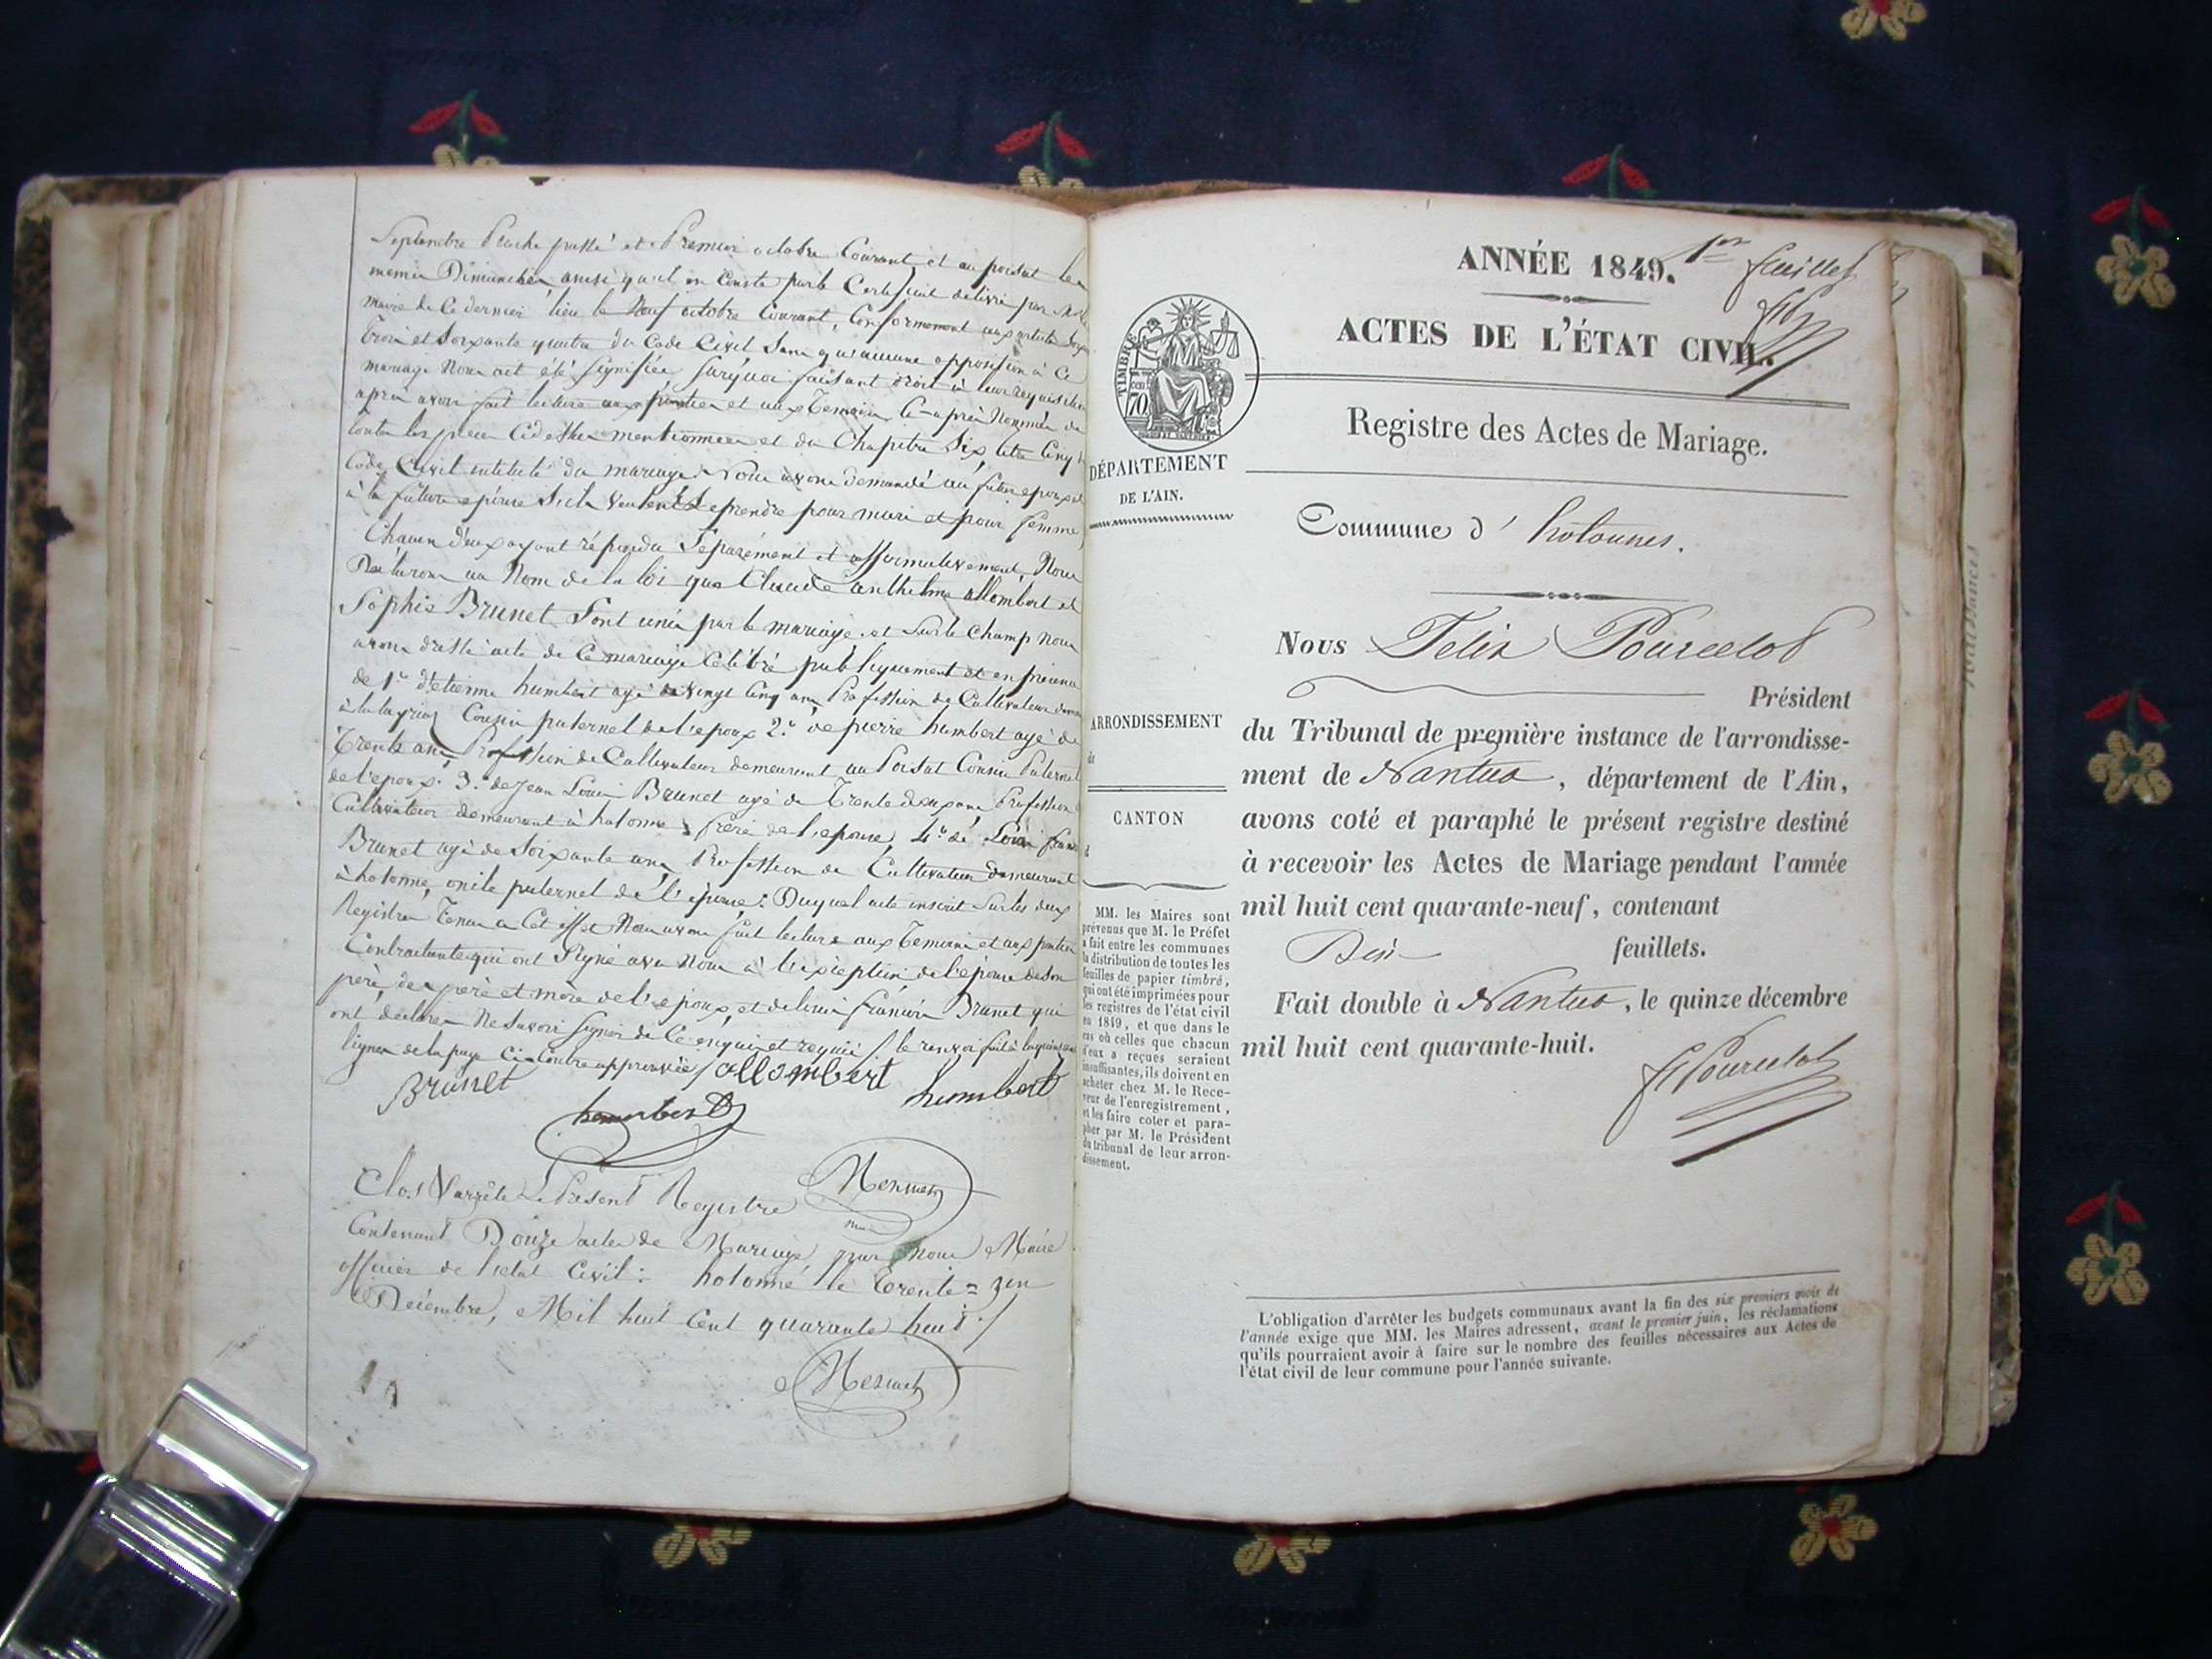 Septembre proche passé et Premier octobre Courant et au poisat les
memes Dimanches, ainsi qu'il en Conste par le Certificat délivré par
maire de Ce dernier lieu le Neuf octobre Courant, Conformement aux articles
trois et Soixante quatre du Code Civil Sans qu'aucune opposition à Ce
mariage Nous ait été Signifiée Surquoi faisant droit à leur requisition
après avoir fait lecture aux parties et aux Temoins Ci-après Nommés de
toutes les pieces Cidessus mentionnées et du Chapitre Six, titre Cinq
Code Civil intitulé du mariage. Nous avons demandé au futur epoux et
à la future epouse S'ils veulent Se prendre pour mari et pour femme,
Chacun deux ayant répondu Séparément et affirmativement, Nous
Déclarons au Nom de la loi que Claude anthelme allombert et
Sophie Brunet Sont unis par le mariage. et Sur le Champ nous
avons dressé acte de Ce mariage Célébré publiquement et en présence
de 1° d'etienne humbert agé de vingt Cinq ans Profession de Cultivateur
Cousin paternel de l'epoux 2° de pierre humbert agé de
Trente ans Profession de Cultivateur demeurant au Poisat Cousin Paternel
de l'epoux. 3° de Jean Louis Brunet agé de Trente deux ans Profession
Cultivateur demeurant à hotonne frère de l'epouse, 4° de Louis
Brunet agé de Soixante ans, Profession de Cultivateur demeurant
à hotonne, oncle paternel de l'épouse: Duquel acte inscrit Sur les deux
Registres Tenus a Cet effet Nous avons fait lecture aux Temoins et aux parties
Contractantes qui ont Signé avec Nous à l'exception de l'épouse de son
père, des père et mère de l'epoux, et de Louis françois Brunet qui
ont déclarés Ne Savoir Signer de Ce enquis et requis / le renvoi fait à
lignes de la page Ci-Contre approuvée /
Brunet allombert humbert
humbert
Clos & arrêté Le Présent Registre
Contenant Douze actes de Mariage par nous Maire
officier de l'etat Civil: hotonne le trente = un
Décembre, Mil huit Cent quarante huit /.
ANNÉE 1849.
1er feuillet
ACTES DE L'ÉTAT CIVIL.
TIMBRE
70
Registre des Actes de Mariage.
DÉPARTEMENT
DE L'AIN.
Commune d' hotonnes.
Nous Felix Pourcelot
Président
ARRONDISSEMENT
de
du Tribunal de première instance de l'arrondisse-
ment de Nantua, département de l'Ain,
CANTON
avons coté et paraphé le présent registre destiné
à recevoir les Actes de Mariage pendant l'année
mil huit cent quarante-neuf, contenant
feuillets.
Fait double à Nantua, le quinze décembre
mil huit cent quarante-huit.
F Pourcelot
MM. les Maires sont
prévenus que M. le Préfet
a fait entre les communes
la distribution de toutes les
feuilles de papier timbré,
qui ont été imprimées pour
les registres de l'état civil
en 1849, et que dans le
cas où celles que chacun
d'eux a reçues seraient
insuffisantes, ils doivent en
acheter chez M. le Rece-
veur de l'enregistrement,
et les faire coter et para-
pher par M. le Président
du tribunal de leur arron-
dissement.
L'obligation d'arrêter les budgets communaux avant la fin des six premiers mois de
l'année exige que MM. les Maires adressent, avant le premier juin, les réclamations
qu'ils pourraient avoir à faire sur le nombre des feuilles nécessaires aux Actes de
l'état civil de leur commune pour l'année suivante.
Naissances